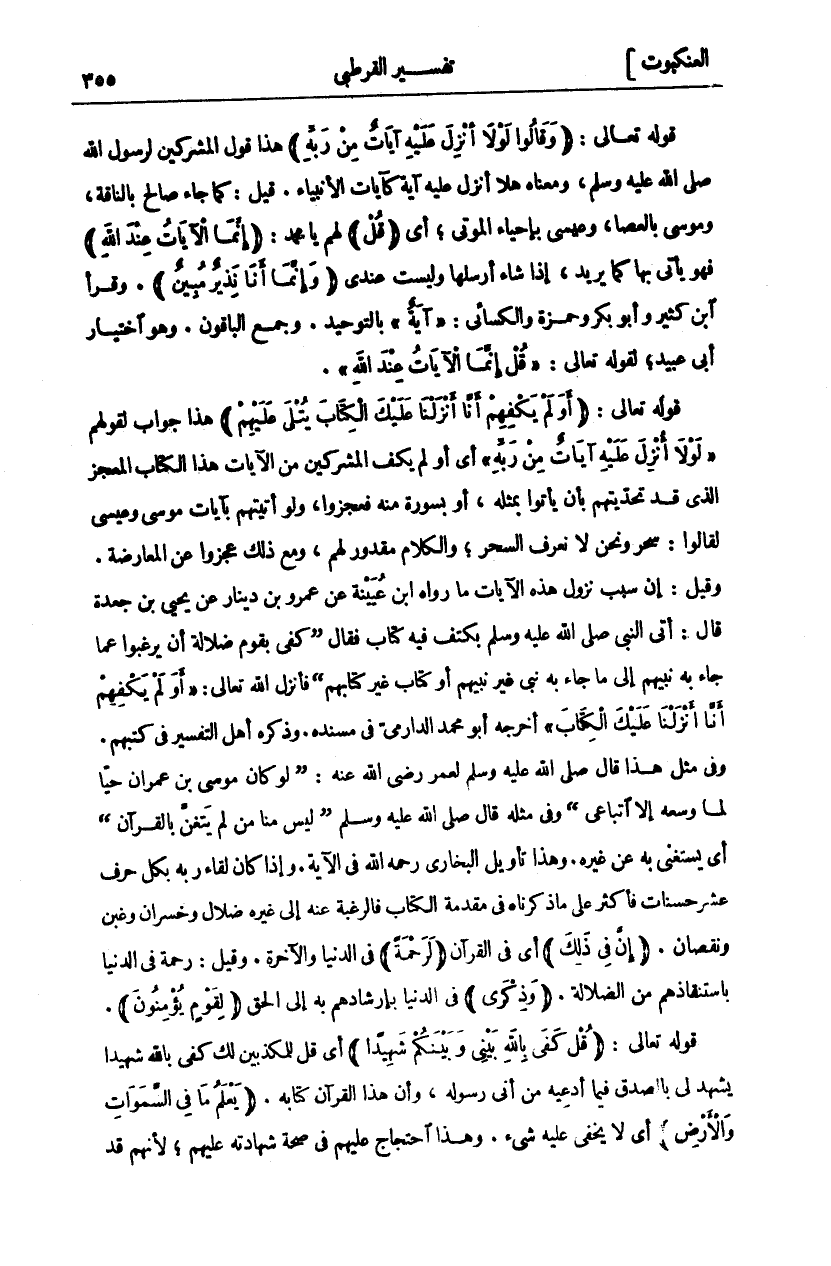 العنكبوت ]
تفسير القرطبي
٣٥٥
قوله تعالى : ﴿ وَقَالُوا لَوْلَا أُنْزِلَ عَلَيْهِ آيَاتٌ مِنْ رَبِّهِ ﴾ هذا قول المشركين لرسول الله
صلى الله عليه وسلم، ومعناه هلا أنزل عليه آية كآيات الأنبياء . قيل : كما جاء صالح بالناقة ،
وموسى بالعصا، وعيسى بإحياء الموتى ؛ أى ﴿ قُلْ ﴾ لهم يا محمد : ﴿ إِنَّمَا الْآيَاتُ عِنْدَ اللهِ ﴾
فهو يأتى بها كما يريد ، إذا شاء أرسلها وليست عندى ﴿ وَإِنَّمَا أَنَا نَذِيرٌ مُبِينٌ ﴾ . وقرأ
آبن كثير وأبو بكر وحمزة والكسائى : « آيَةٌ » بالتوحيد . وجمع الباقون . وهو آختيار
أبى عبيد؛ لقوله تعالى : « قُلْ إِنَّمَا الْآيَاتُ عِنْدَ اللهِ » .
قوله تعالى : ﴿ أَوَلَمْ يَكْفِهِمْ أَنَّا أَنْزَلْنَا عَلَيْكَ الْكِتَابَ يُتْلَى عَلَيْهِمْ ﴾ هذا جواب لقولهم
« لَوْلَا أُنْزِلَ عَلَيْهِ آيَاتٌ مِنْ رَبِّهِ » أى أو لم يكف المشركين من الآيات هذا الكتاب المعجز
الذى قد تحدّيتهم بأن يأتوا بمثله ، أو بسورة منه فعجزوا، ولو أتيتهم بآيات موسى وعيسى
لقالوا : سحر ونحن لا نعرف السحر ؛ والكلام مقدور لهم ، ومع ذلك عجزوا عن المعارضة .
وقيل : إن سبب نزول هذه الآيات ما رواه ابن عُيَيْنة عن عمرو بن دينار عن يحيى بن جعدة
قال : أتى النبى صلى الله عليه وسلم بكتف فيه كتاب فقال ”كفى بقوم ضلالة أن يرغبوا عما
جاء به نبيهم إلى ما جاء به نبى غير نبيهم أو كتاب غير كتابهم“ فأنزل الله تعالى: « أَوَلَمْ يَكْفِهِمْ
أَنَّا أَنْزَلْنَا عَلَيْكَ الْكِتَابَ » أخرجه أبو محمد الدارمىّ فى مسنده . وذكره أهل التفسير فى كتبهم .
وفى مثل هذا قال صلى الله عليه وسلم لعمر رضى الله عنه : ” لو كان موسى بن عمران حيًّا
لما وسعه إلا آتباعى “ وفى مثله قال صلى الله عليه وسلم ” ليس منا من لم يَتَغنَّ بالقرآن “
أى يستغنى به عن غيره . وهذا تأويل البخارى رحمه الله فى الآية . وإذا كان لقاء ربه بكل حرف
عشر حسنات فأكثر على ما ذكرناه فى مقدمة الكتاب فالرغبة عنه إلى غيره ضلال وخسران وغبن
ونقصان . ﴿ إِنَّ فِي ذَلِكَ ﴾ أى فى القرآن ﴿ لَرَحْمَةً ﴾ فى الدنيا والآخرة . وقيل : رحمة فى الدنيا
باستنقاذهم من الضلالة . ﴿ وَذِكْرَى ﴾ فى الدنيا بإرشادهم به إلى الحق ﴿ لِقَوْمٍ يُؤْمِنُونَ ﴾ .
قوله تعالى : ﴿ قُلْ كَفَى بِاللهِ بَيْنِي وَبَيْنَكُمْ شَهِيدًا ﴾ أى قل للمكذبين لك كفى بالله شهيدا
يشهد لى بالصدق فيما أدعيه من أنى رسوله ، وأن هذا القرآن كتابه . ﴿ يَعْلَمُ مَا فِي السَّمَوَاتِ
وَالْأَرْضِ ﴾ أى لا يخفى عليه شىء . وهذا آحتجاج عليهم فى صحة شهادته عليهم ؛ لأنهم قد